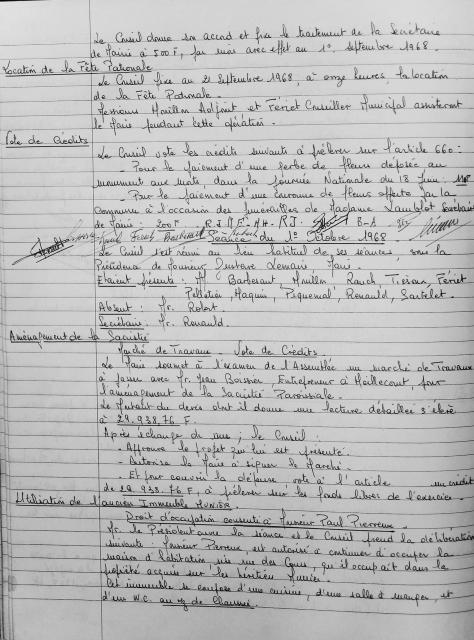 Le Conseil donne son accord et fixe le traitement de la Secrétaire
de Mairie à 500 F, par mois avec effet au 1°, Septembre 1968.
Location de la Fête Patronale
Le Conseil fixe au 21 Septembre 1968, à onze heures, la location
de la Fête Patronale.
Messieurs Adjoint et Fériet Conseiller Municipal assisteront
le Maire pendant cette opération.
Vote de Crédits
Le Conseil vote les crédits suivants à prélever sur l'article 660:
- Pour le paiement d'une gerbe de fleurs déposée au
monument aux morts, dans la journée Nationale du 13 Juin:
- Pour le paiement d'une Couronne de fleurs offerte par la
Commune à l'occasion des funérailles de Madame Secrétaire
de Mairie: 200 F
Séance du 1° Octobre 1968
Le Conseil s'est réuni au lieu habituel de ses séances, sous la
Présidence de Monsieur Gustave Lemaire Maire.
Etaient présents: MM. Rauch, Fériet
Pelletier Renauld,
Absent: Mr. Robert.
Secrétaire: Mr. Renauld.
Aménagement de la Sacristie
Marché de Travaux - Vote de Crédits.
Le Maire soumet à l'examen de l'Assemblée un marché de Travaux
à passer avec Mr. Jean Entrepreneur à pour
l'aménagement de la Sacristie Paroissiale.
Le Montant du devis dont il donne une lecture détaillée s'élève
à 29.938,76 F.
Après échange de vues; le Conseil:
- Approuve le projet qui lui est présenté.
- Autorise le Maire à signer le Marché.
- Et pour couvrir la dépense vote à l'article un crédit
de 29.938.76 F, à prélever sur les fonds libres de l'exercice.
Utilisation de l'ancien Immeuble
Droit d'occupation consenti à Monsieur Paul Pierreux.
Mr. le Président ouvre la séance et le Conseil prend la délibération
suivante: Monsieur Pierreux, est autorisé à continuer d'occuper la
maison d'habitation sis rue des qu'il occupait dans la
propriété acquise sur les héritiers
Cet immeuble se compose d'une cuisine, d'une salle à manger, et
d'un W.C. au rez de Chaussée.